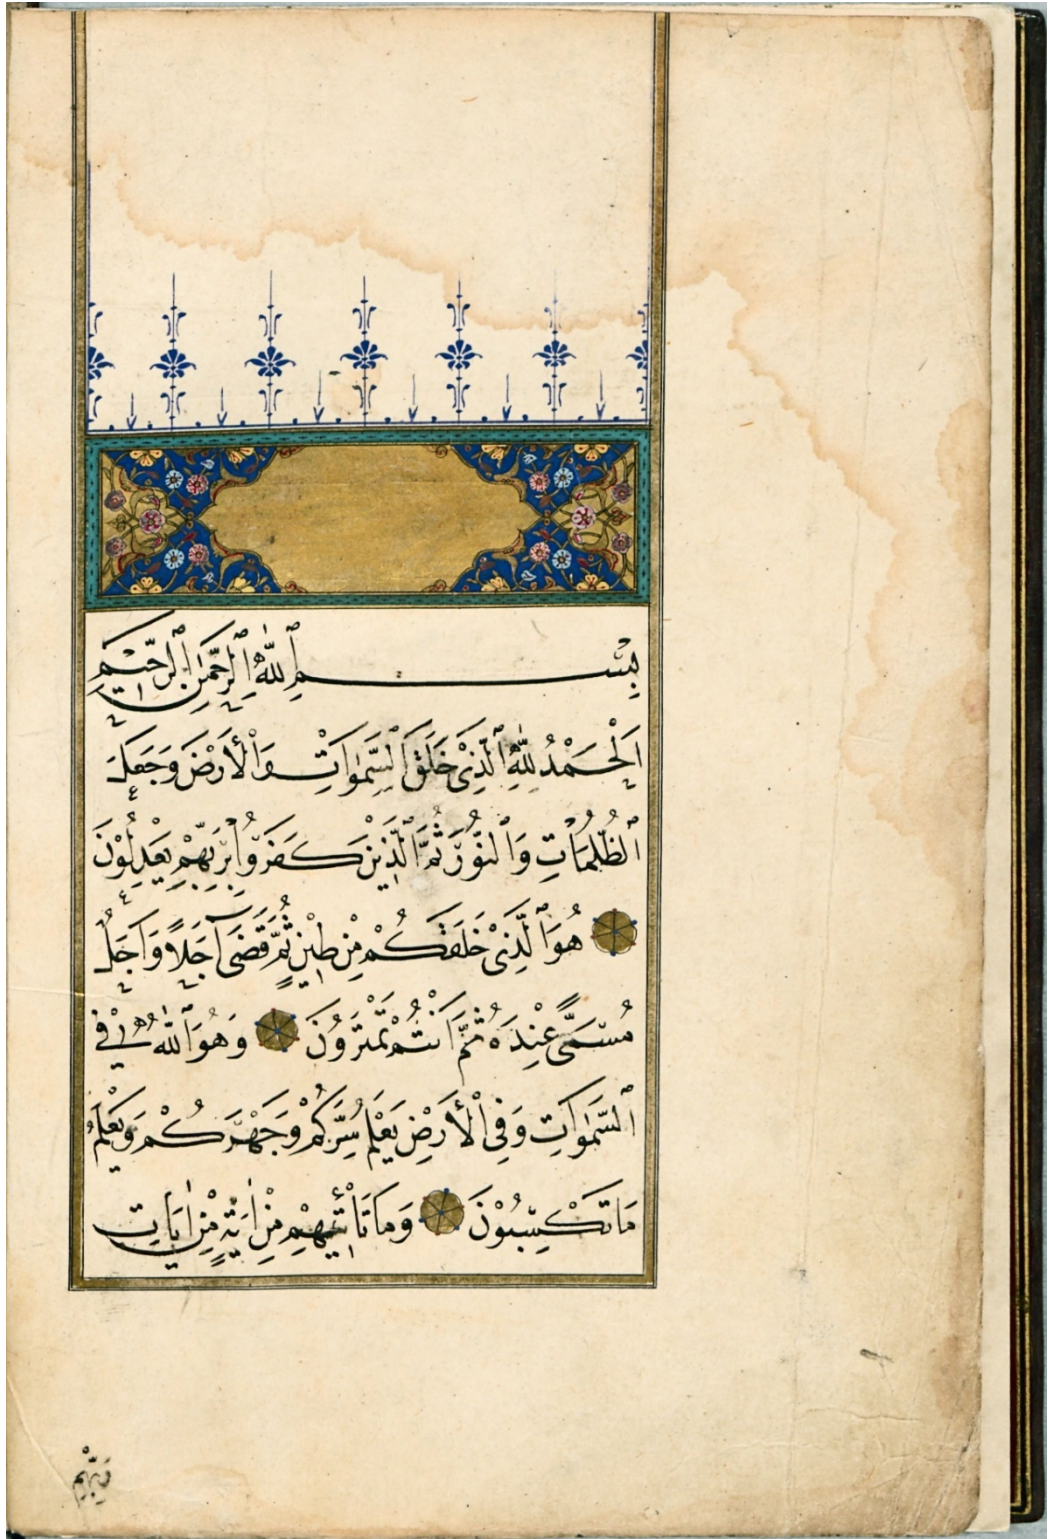 بِسْمِ اللّٰهِ الرَّحْمٰنِ الرَّحٖيمِ
اَلْحَمْدُ لِلّٰهِ الَّذِىْ خَلَقَ السَّمٰوَاتِ وَالْاَرْضَ وَجَعَلَ
الظُّلُمَاتِ وَالنُّوْرَ ثُمَّ الَّذِيْنَ كَفَرُوْا بِرَبِّهِمْ يَعْدِلُوْنَ
هُوَ الَّذِىْ خَلَقَكُمْ مِنْ طِيْنٍ ثُمَّ قَضٰٓى اَجَلًا وَاَجَلٌ
مُسَمًّى عِنْدَهُ ثُمَّ اَنْتُمْ تَمْتَرُوْنَ وَهُوَ اللّٰهُ فِى
السَّمٰوَاتِ وَفِى الْاَرْضِ يَعْلَمُ سِرَّكُمْ وَجَهْرَكُمْ وَيَعْلَمُ
مَا تَكْسِبُوْنَ وَمَا تَاْتِيْهِمْ مِنْ اٰيَةٍ مِنْ اٰيَاتِ
رَبِّهِمْ